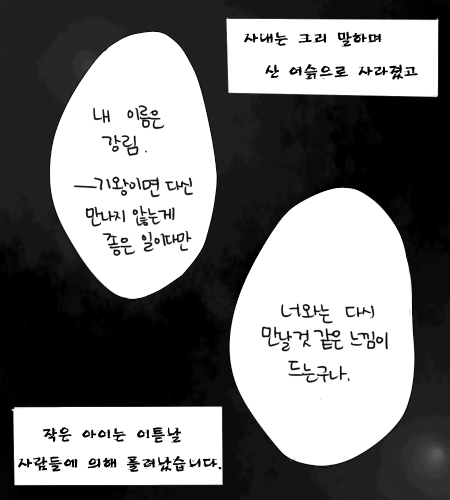 사내는 그리 말하며
산 어슭으로 사라졌고
내 이름은
강림.
—기왕이면 다신
만나지 않는게
좋은 일이다만
너와는 다시
만날것 같은 느낌이
드는구나.
작은 아이는 이튿날
사람들에 의해 풀려났습니다.